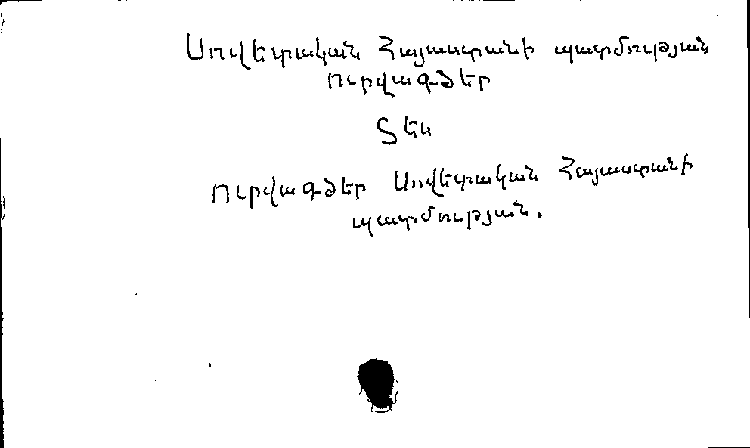 Սովետական Հայաստանի պատմության
ուրվագծեր
Տես
Ուրվագծեր Սովետական Հայաստանի
պատմության.